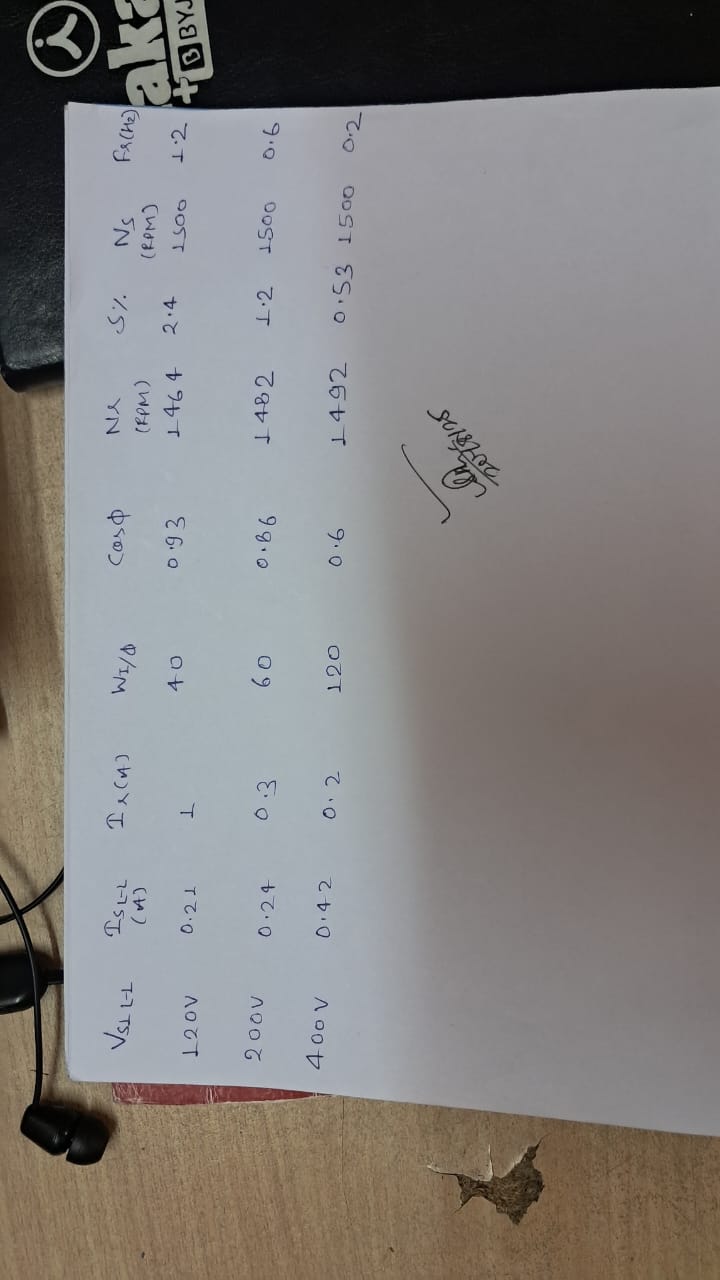 VS1 L-L IS L-L (A) Ir(A) WI/Φ Cosφ Nr (RPM) S% Ns (RPM) Fr(Hz)
120V 0.21 1 40 0.93 1464 2.4 1500 1.2
200V 0.24 0.3 60 0.86 1482 1.2 1500 0.6
400V 0.42 0.2 120 0.6 1492 0.53 1500 0.2
20/8/25
aka
+ B BYJ